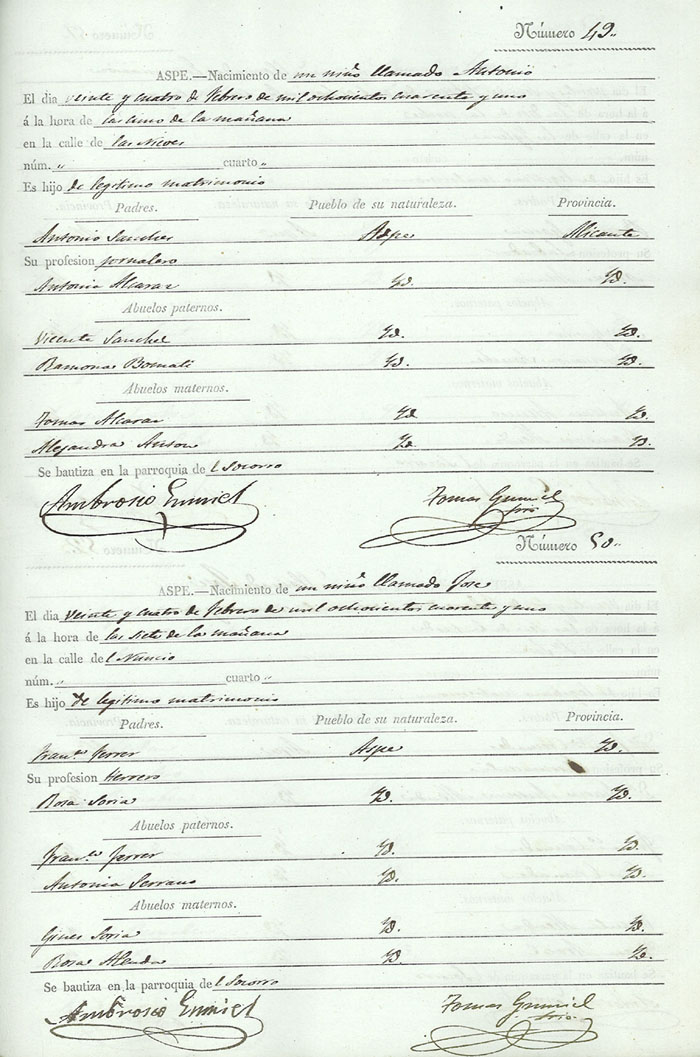 Número 49.
ASPE.—Nacimiento de un niño llamado Antonio
El dia veinte y cuatro de Febrero de mil ochocientos cuarenta y uno
á la hora de las cinco de la mañana
en la calle de las Nieves
núm. „ cuarto „
Es hijo de legitimo matrimonio
Padres. Pueblo de su naturaleza. Provincia.
Antonio Sanchez Aspe Alicante
Su profesion jornalero
Antonia Alcaraz Yd. Yd.
Abuelos paternos.
Vicente Sanchez Yd. Yd.
Ramona Bornati Yd. Yd.
Abuelos maternos.
Tomas Alcaraz Yd. Yd.
Alejandra Anton Yd. Yd.
Se bautiza en la parroquia de l Socorro
Ambrosio Tomas
Número 50.
ASPE.—Nacimiento de un niño llamado Jose
El dia veinte y cuatro de Febrero de mil ochocientos cuarenta y uno
á la hora de las siete de la mañana
en la calle de l Nuncio
núm. „ cuarto „
Es hijo de legitimo matrimonio
Padres. Pueblo de su naturaleza. Provincia.
Fran.co Ferrer Aspe Yd.
Su profesion Herrero
Rosa Soria Yd. Yd.
Abuelos paternos.
Fran.co Ferrer Yd. Yd.
Antonia Serrano Yd. Yd.
Abuelos maternos.
Gines Soria Yd. Yd.
Rosa Alenda Yd. Yd.
Se bautiza en la parroquia de l Socorro
Ambrosio Tomas